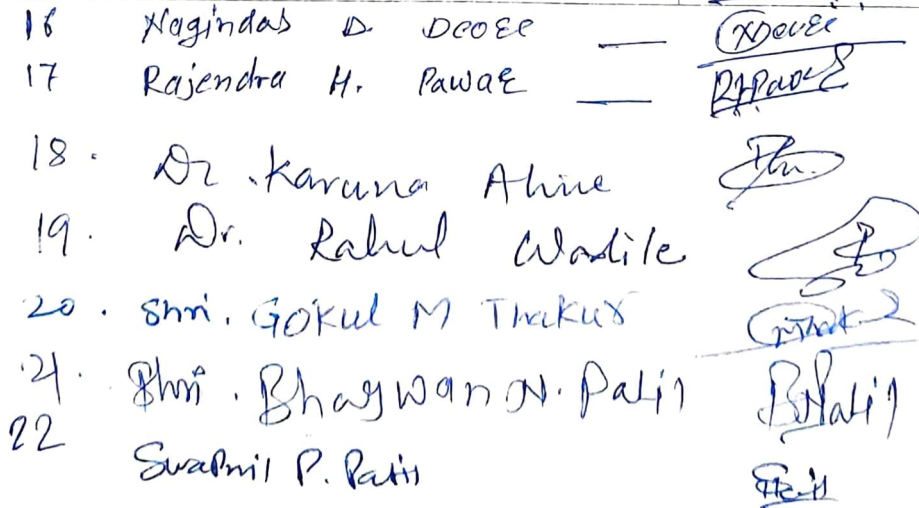 16 Nagindas D. Deore
17 Rajendra H. Pawar
18. Dr. Karuna Ahire
19. Dr. Rahul Wadile
20. Shri. Gokul M Thakur
21. Shri. Bhagwan N. Patil BNPatil
22 Swapnil P. Patil